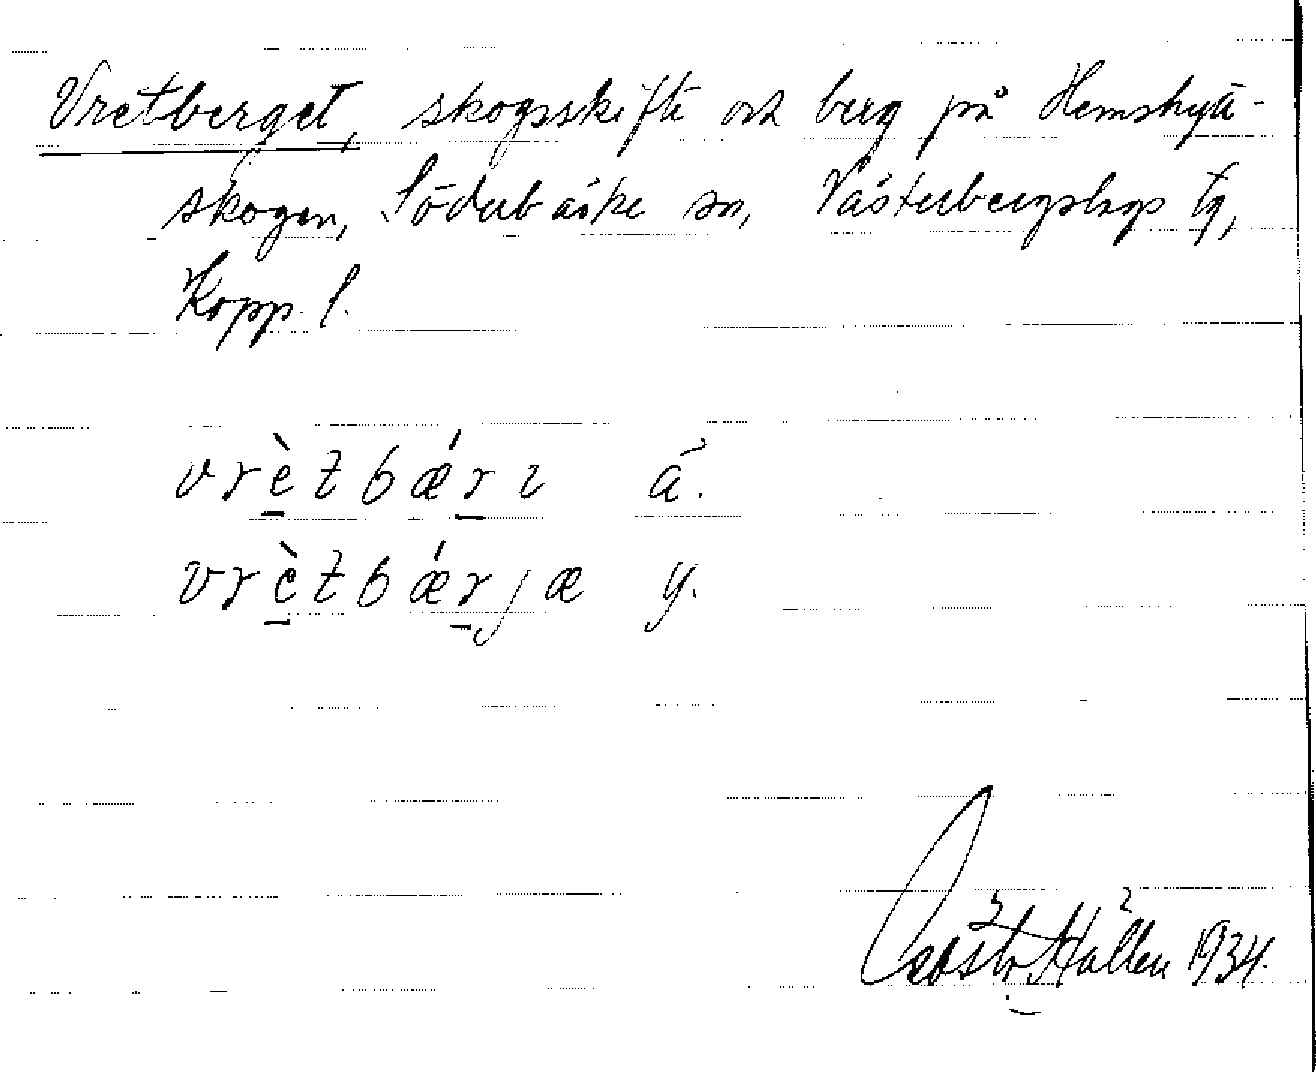 Vretberget, skogsskifte och berg på Hemshytte-
skogen, Söderbärke sn, Västerbergslags tg,
Kopp. l.
vrètbǽrı ä.
vrètbǽrjæ y.
Gösta Hallen 1934.